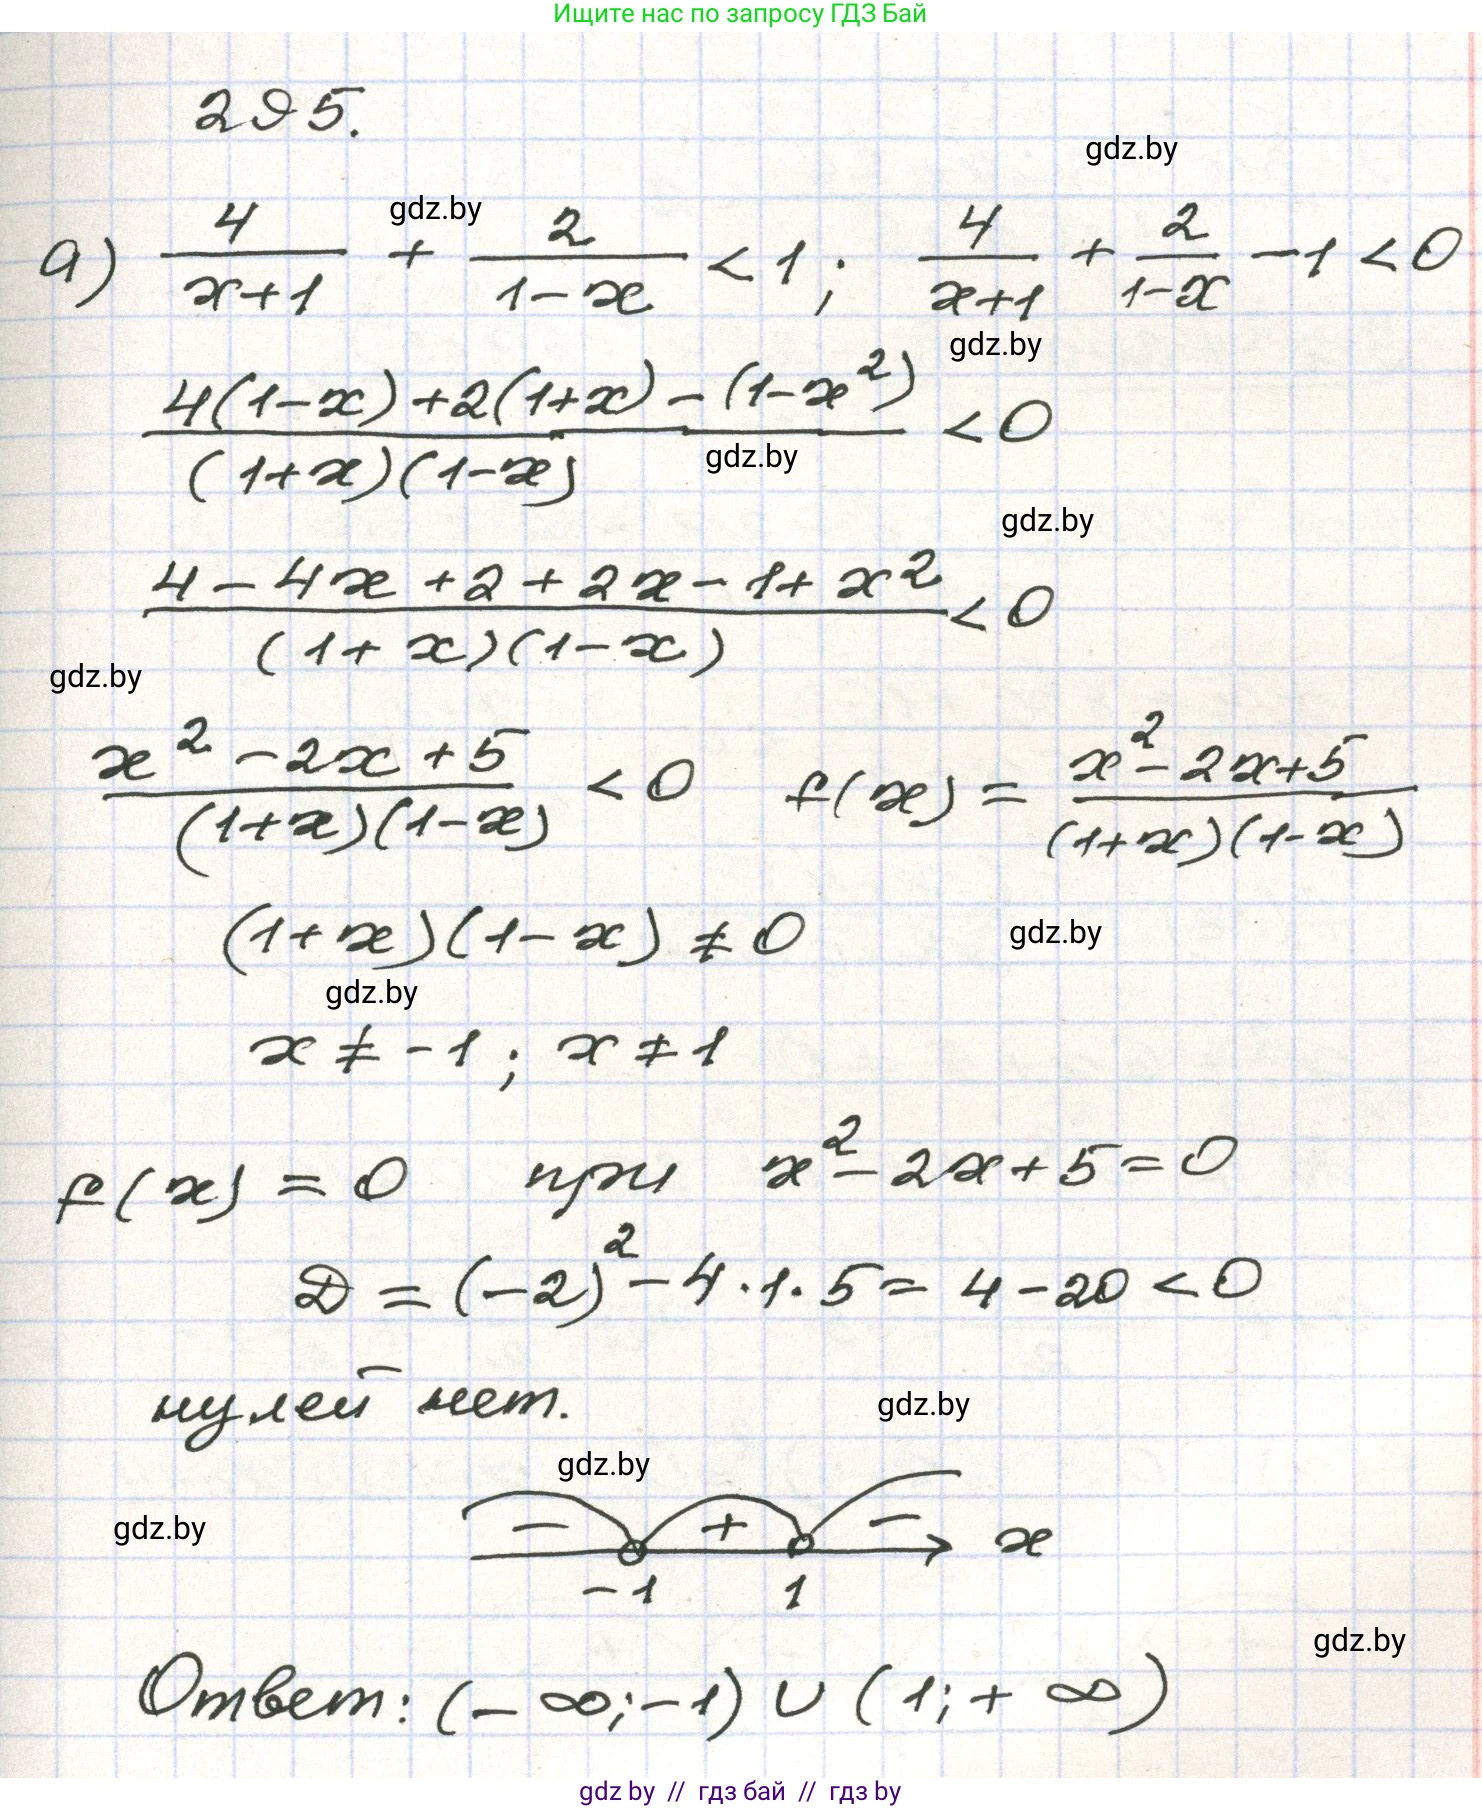 Ищите нас по запросу ГДЗ Бай
295.
gdz.by
gdz.by
а) 4/(x+1) + 2/(1-x) < 1; 4/(x+1) + 2/(1-x) - 1 < 0
gdz.by
(4(1-x)+2(1+x)-(1-x²))/((1+x)(1-x)) < 0
gdz.by
gdz.by
(4-4x+2+2x-1+x²)/((1+x)(1-x)) < 0
gdz.by
(x²-2x+5)/((1+x)(1-x)) < 0 f(x) = (x²-2x+5)/((1+x)(1-x))
(1+x)(1-x) ≠ 0
gdz.by
gdz.by
x ≠ -1; x ≠ 1
f(x) = 0 при x²-2x+5=0
D = (-2)²-4·1·5= 4-20<0
нулей нет.
gdz.by
gdz.by
gdz.by
- + - x
-1 1
gdz.by
Ответ: (-∞;-1) ∪ (1;+∞)
gdz.by // гдз бай // гдз by